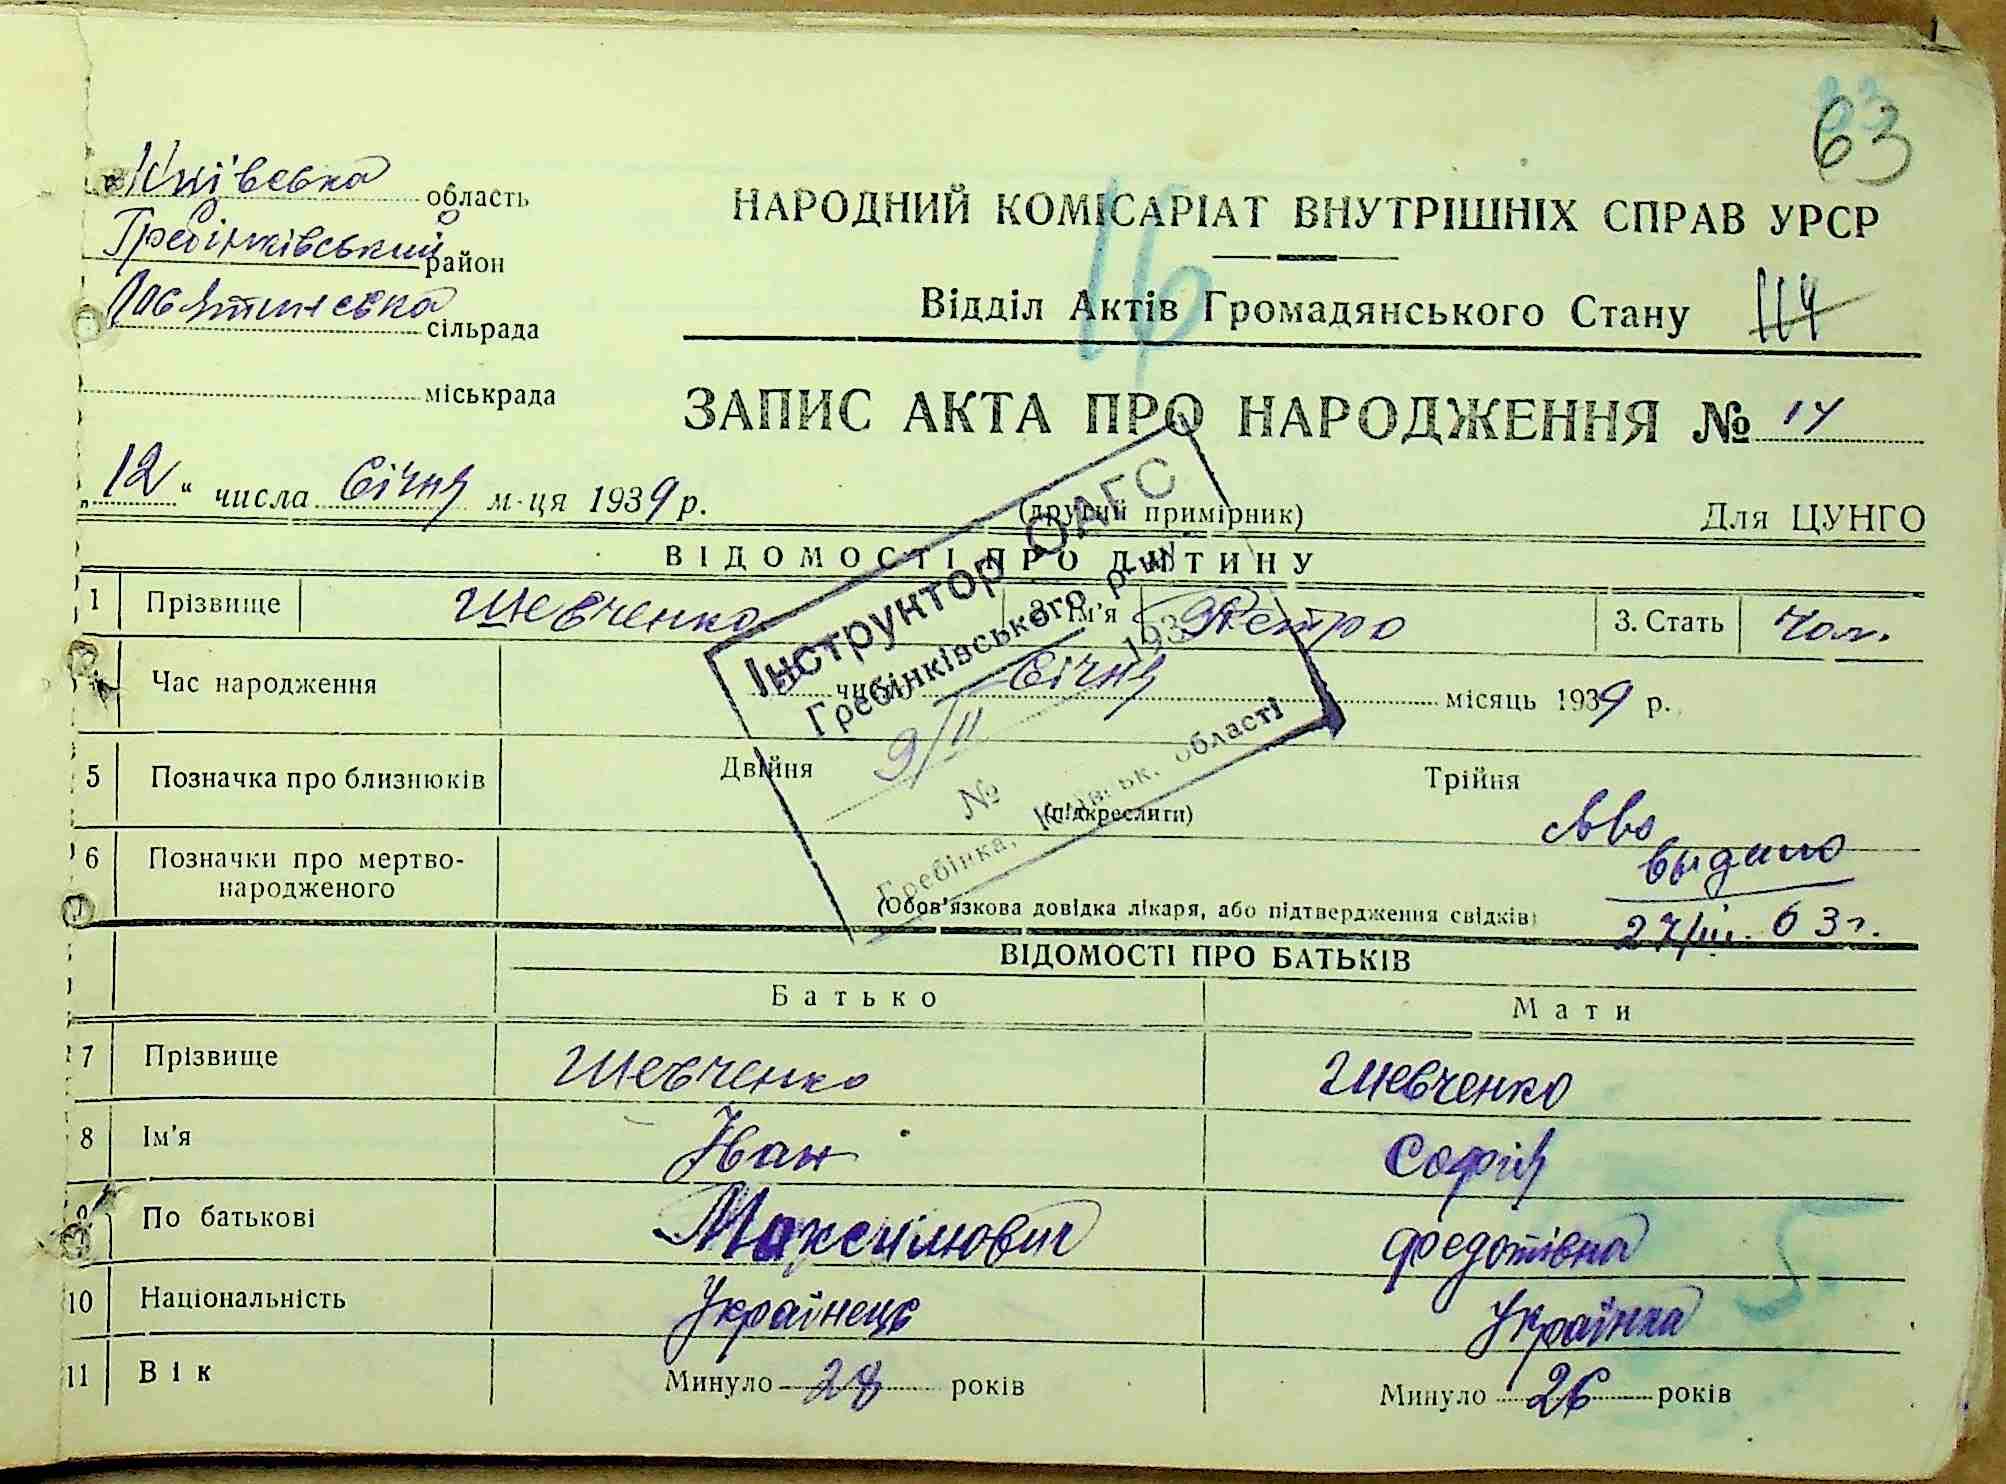 63
Київська область
НАРОДНИЙ КОМІСАРІАТ ВНУТРІШНІХ СПРАВ УРСР
Гребінківський район
16
Відділ Актів Громадянського Стану 114
сільрада
міськрада
ЗАПИС АКТА ПРО НАРОДЖЕННЯ № 14
„12“ числа Січня м-ця 1939 р.
(другий примірник)
Для ЦУНГО
ВІДОМОСТІ ПРО ДИТИНУ
1 Прізвище Шевченко 2. Ім'я Петро 3. Стать Чол.
Час народження числа Січня місяць 1939 р.
Інструктор ОАГС
Гребінківського р-ну
9/II 193
№
Гребінка, Київськ. області
5 Позначка про близнюків Двійня Трійня
(підкреслити)
6 Позначки про мертво-
народженого
(Обов'язкова довідка лікаря, або підтвердження свідків)
выдано
27/III. 63 г.
ВІДОМОСТІ ПРО БАТЬКІВ
Батько Мати
7 Прізвище Шевченко Шевченко
8 Ім'я Іван Софія
9 По батькові Максимович Федотівна
10 Національність Українець Українка
11 Вік Минуло 28 років Минуло 26 років